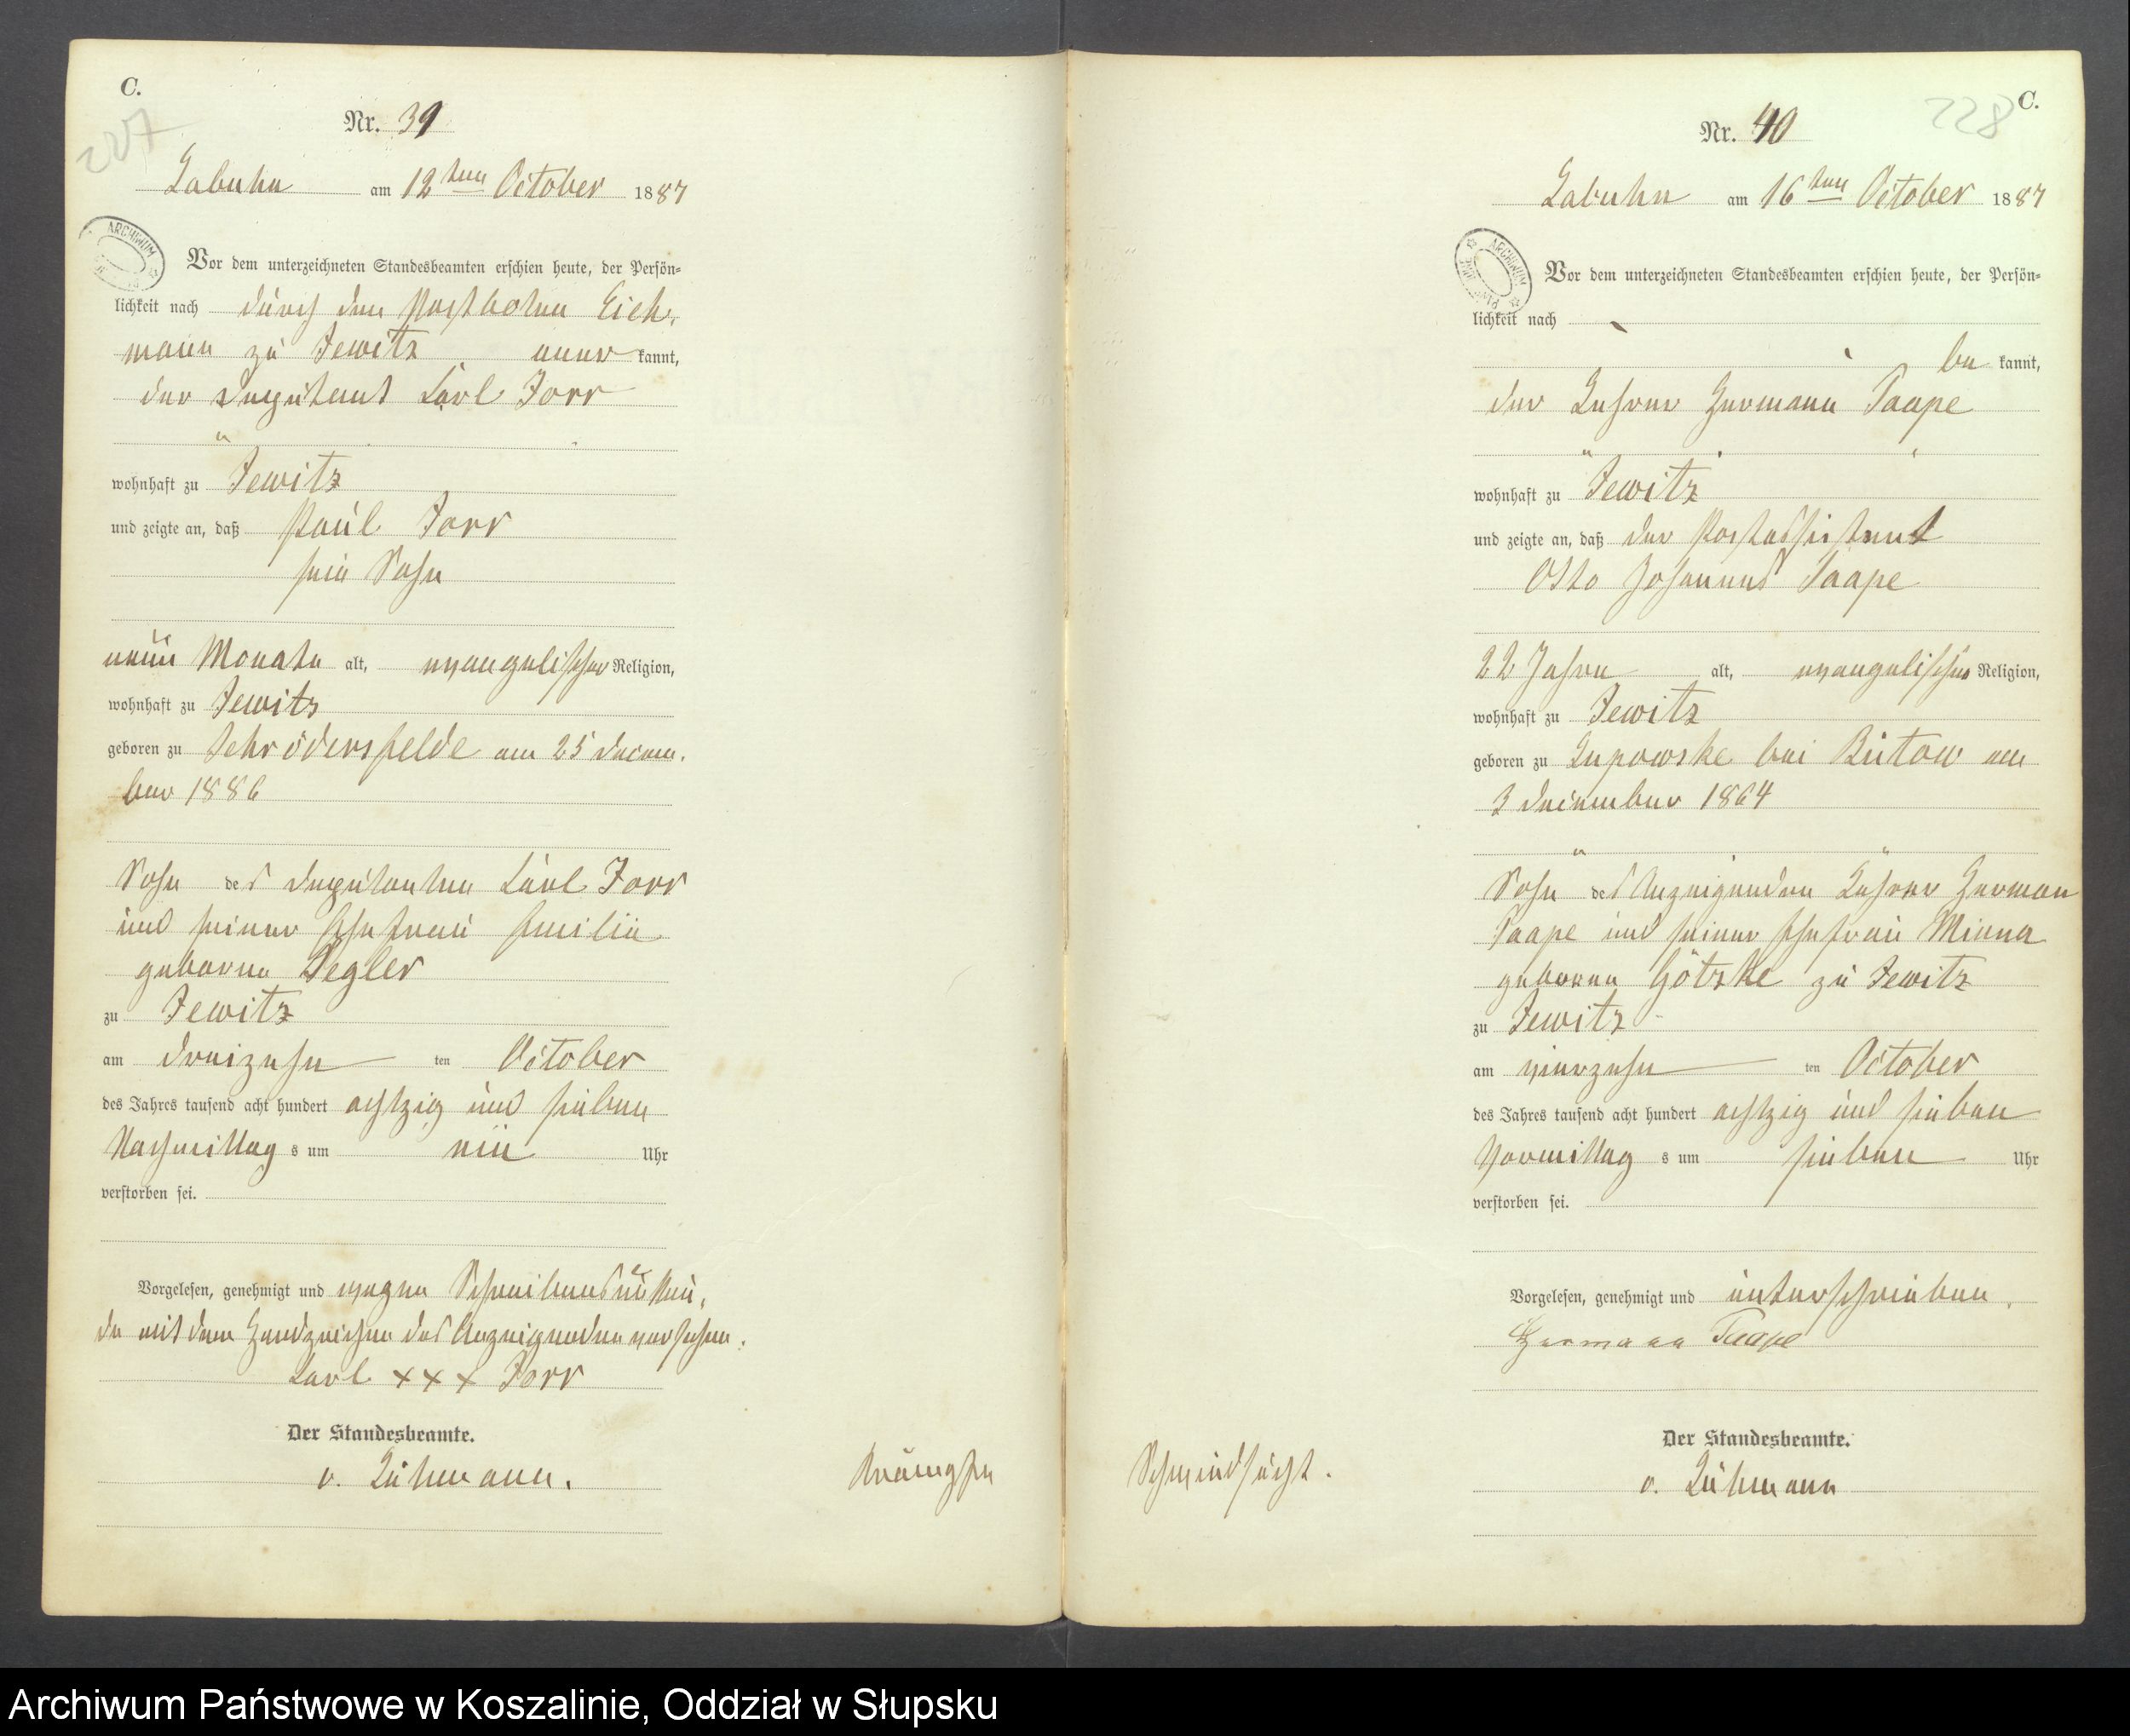 C.
227
Nr. 39
Labuhn am 12ten October 1887
ARCHIWUM
Vor dem unterzeichneten Standesbeamten erschien heute, der Persön=
lichkeit nach durch den Postboten Eich,
mann zu Jewitz aner kannt,
der Deputant Carl Jorr
wohnhaft zu Jewitz
und zeigte an, daß Paul Jorr
sein Sohn
neun Monate alt, evangelischer Religion,
wohnhaft zu Jewitz
geboren zu Schrödersfelde am 25 Decem,
ber 1886
Sohn des Deputanten Carl Jorr
und seiner Ehefrau Emilie
geborne Segler
zu Jewitz
am dreizehn ten October
des Jahres tausend acht hundert achtzig und sieben
Nachmittag s um Uhr
verstorben sei.
Vorgelesen, genehmigt und wegen Schreibensunkun,
de mit dem Handzeichen des Anzeigenden versehen.
Carl XXX Jorr
Der Standesbeamte.
v. Lühmann.
C.
228
Nr. 40
Labuhn am 16ten October 1887
ARCHIWUM
Vor dem unterzeichneten Standesbeamten erschien heute, der Persön=
lichkeit nach
be kannt,
der Lehrer Hermann Taape
wohnhaft zu Jewitz
und zeigte an, daß der Postassistent
Otto Johannes Taape
22 Jahre alt, evangelischer Religion,
wohnhaft zu Jewitz
geboren zu Lupowske bei Bütow am
3 December 1864
Sohn des Anzeigenden Lehrer Herman
Taape und seiner Ehefrau Minna
geborne Götzke zu Jewitz
zu Jewitz
am vierzehn ten October
des Jahres tausend acht hundert achtzig und sieben
Vormittag s um sieben Uhr
verstorben sei.
Vorgelesen, genehmigt und unterschrieben.
Hermann Taape
Der Standesbeamte.
v. Lühmann
Schwindsucht.
Archiwum Państwowe w Koszalinie, Oddział w Słupsku